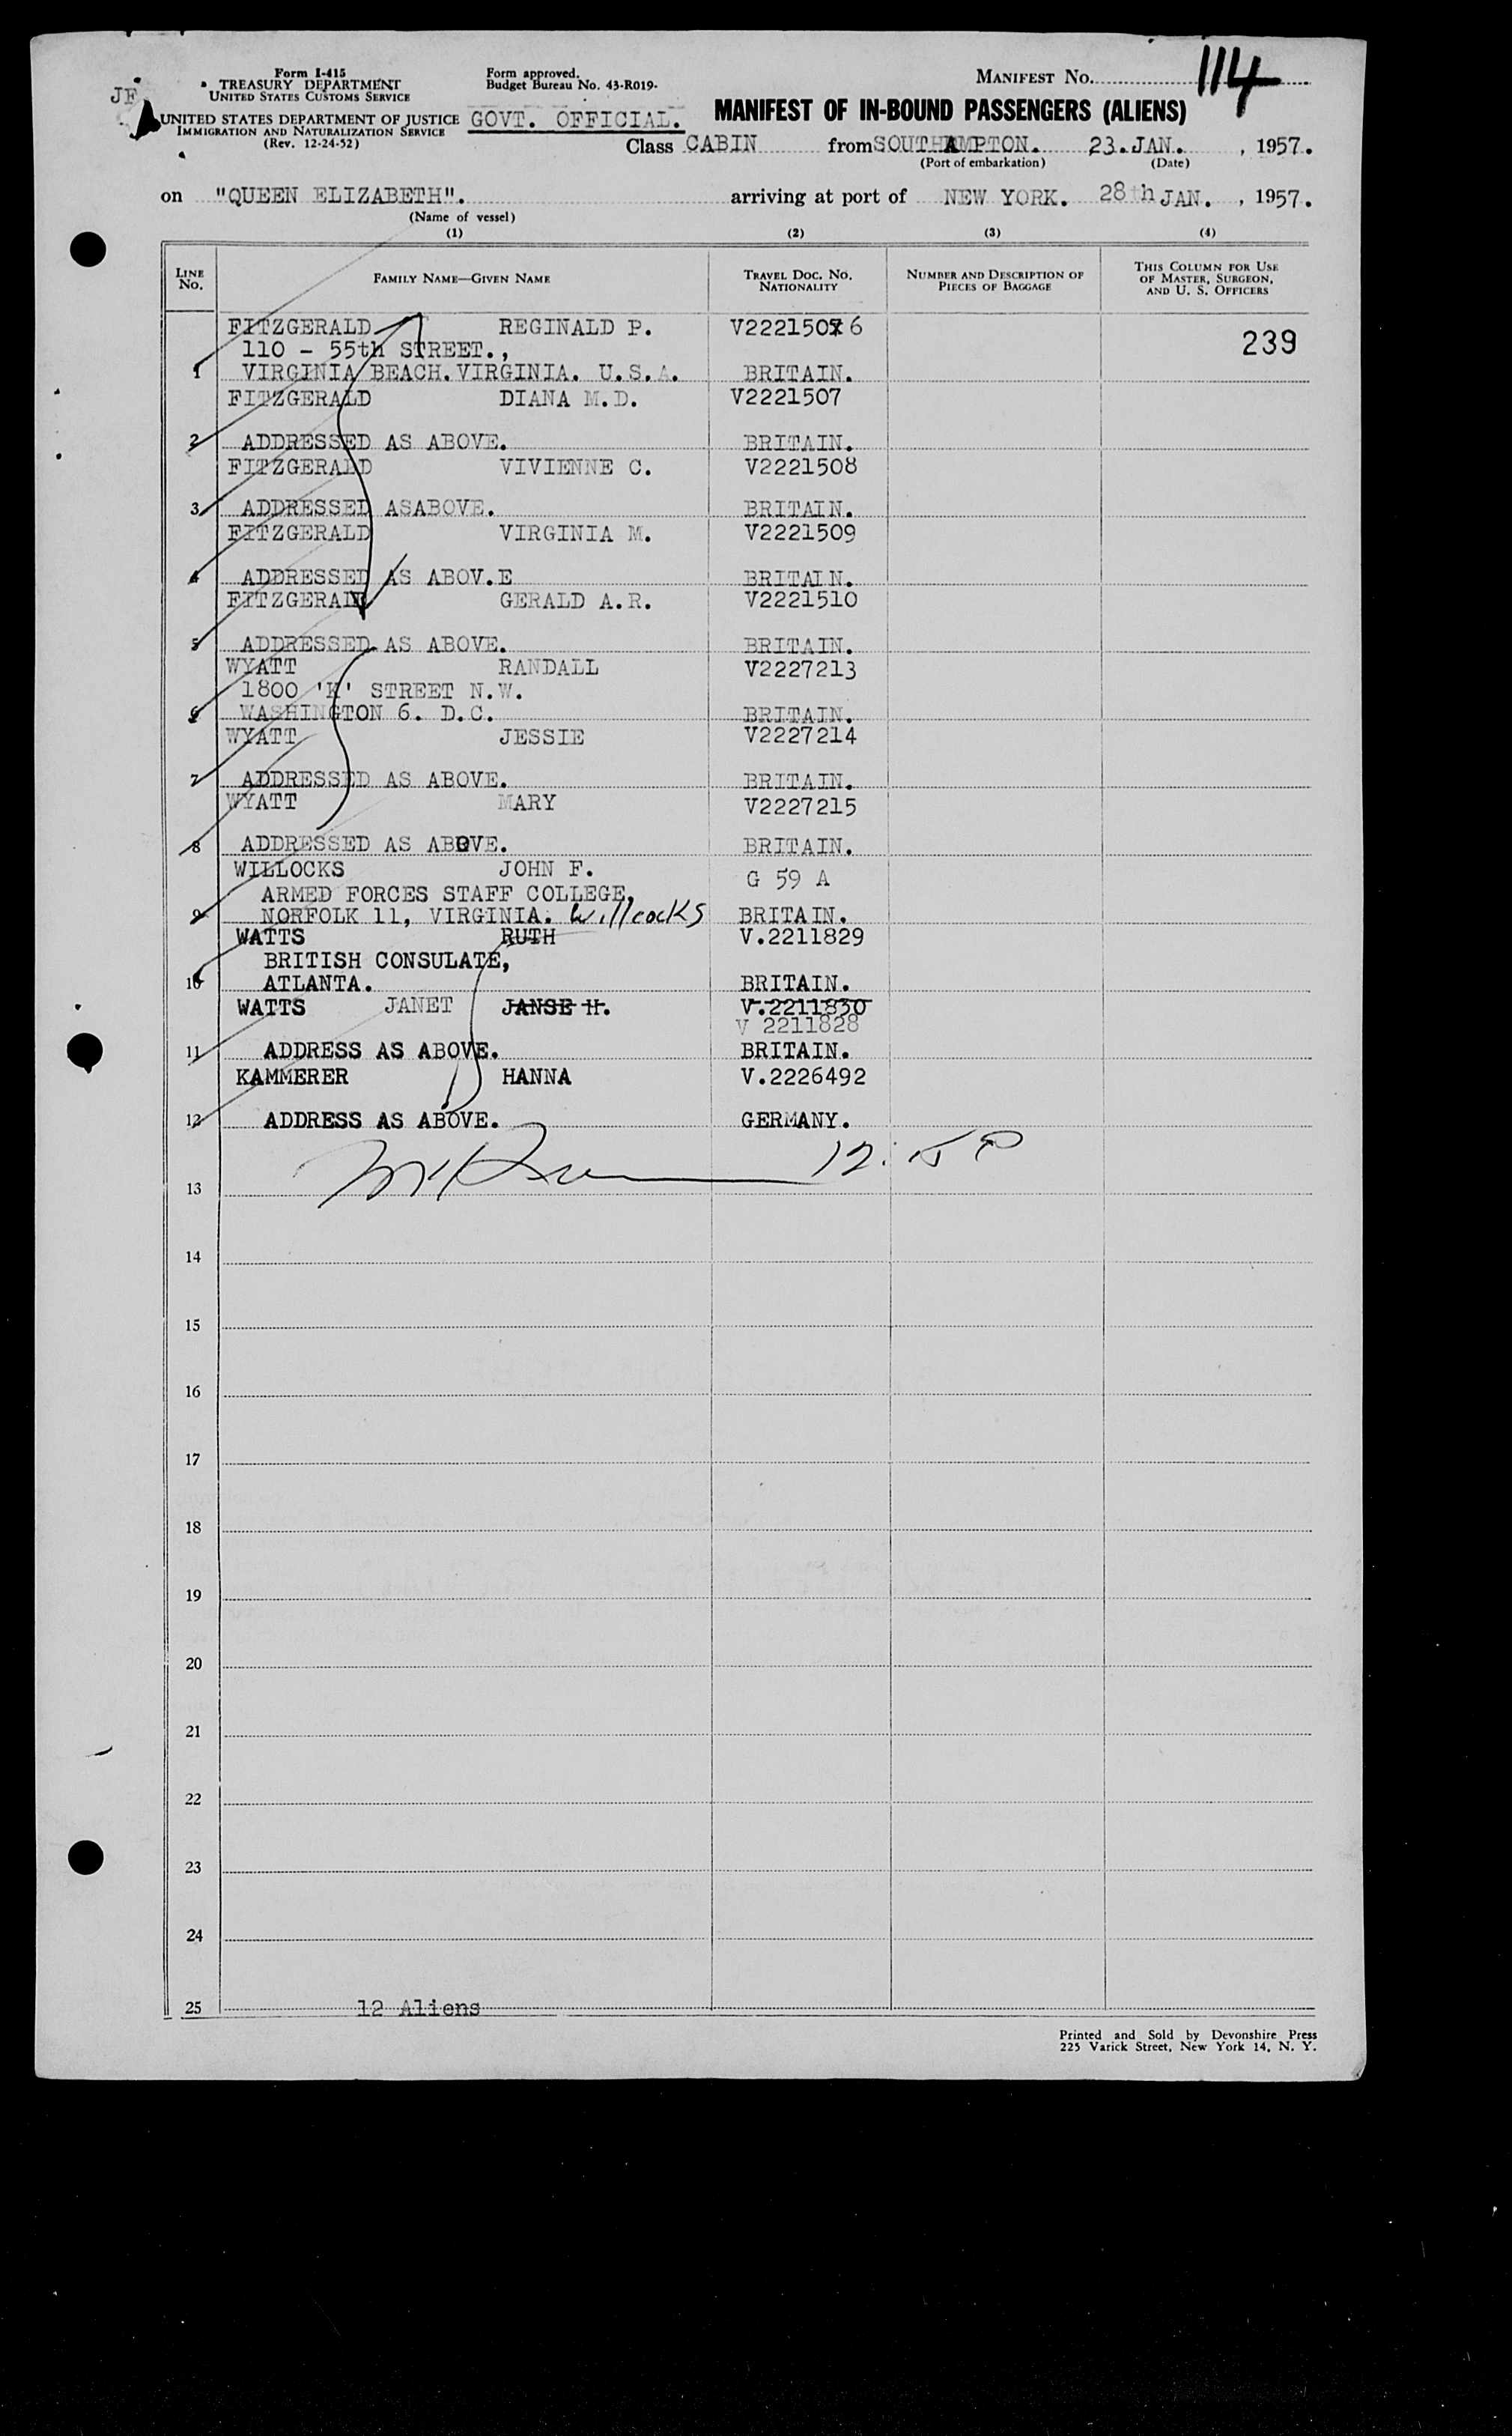 JF
Form I-415
TREASURY DEPARTMENT
UNITED STATES CUSTOMS SERVICE
UNITED STATES DEPARTMENT OF JUSTICE
IMMIGRATION AND NATURALIZATION SERVICE
(Rev. 12-24-52)
Form approved.
Budget Bureau No. 43-R019-
GOVT. OFFICIAL.
MANIFEST NO. 114
MANIFEST OF IN-BOUND PASSENGERS (ALIENS)
Class CABIN from SOUTHAMPTON. 23.JAN. , 1957.
(Port of embarkation) (Date)
on "QUEEN ELIZABETH". arriving at port of NEW YORK. 28th JAN. , 1957.
(Name of vessel)
(1) (2) (3) (4)
LINE NO. FAMILY NAME—GIVEN NAME TRAVEL DOC. NO. NATIONALITY NUMBER AND DESCRIPTION OF PIECES OF BAGGAGE THIS COLUMN FOR USE OF MASTER, SURGEON, AND U. S. OFFICERS
FITZGERALD REGINALD P. V2221507 6 239
110 - 55th STREET.,
1 VIRGINIA BEACH.VIRGINIA. U.S.A. BRITAIN.
FITZGERALD DIANA M.D. V2221507
2 ADDRESSED AS ABOVE. BRITAIN.
FITZGERALD VIVIENNE C. V2221508
3 ADDRESSED ASABOVE. BRITAIN.
FITZGERALD VIRGINIA M. V2221509
4 ADDRESSED AS ABOV.E BRITAIN.
FITZGERALD GERALD A.R. V2221510
5 ADDRESSED AS ABOVE. BRITAIN.
WYATT RANDALL V2227213
1800 'K' STREET N.W.
6 WASHINGTON 6. D.C. BRITAIN.
WYATT JESSIE V2227214
7 ADDRESSED AS ABOVE. BRITAIN.
WYATT MARY V2227215
8 ADDRESSED AS ABOVE. BRITAIN.
WILLOCKS JOHN F. G 59 A
ARMED FORCES STAFF COLLEGE,
9 NORFOLK 11, VIRGINIA. Willcocks BRITAIN.
WATTS RUTH V.2211829
BRITISH CONSULATE,
10 ATLANTA. BRITAIN.
WATTS JANET JANSE H. V.2211830
V 2211828
11 ADDRESS AS ABOVE. BRITAIN.
KAMMERER HANNA V.2226492
12 ADDRESS AS ABOVE. GERMANY.
13
14
15
16
17
18
19
20
21
22
23
24
25 12 Aliens
Printed and Sold by Devonshire Press
225 Varick Street, New York 14, N. Y.